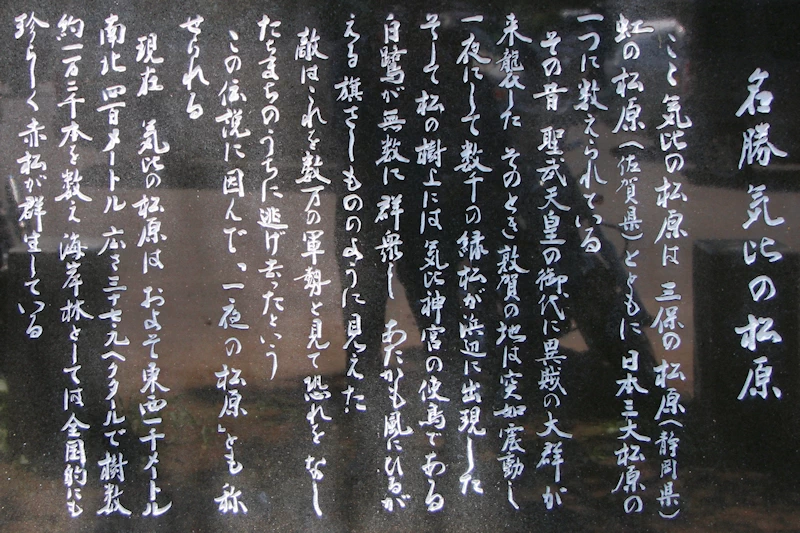 名勝 気比の松原
ここ気比の松原は 三保の松原(静岡県)
虹の松原(佐賀県)とともに 日本三大松原の
一つに数えられている
その昔 聖武天皇の御代に異賊の大群が
来襲した そのとき敦賀の地は突如震動し
一夜にして数千の緑松が浜辺に出現した
そして松の樹上には 気比神宮の使鳥である
白鷺が無数に群衆し あたかも風にひるが
える旗さしもののように見えた
敵はこれを数万の軍勢と見て恐れをなし
たちまちのうちに逃げ去ったという
この伝説に因んで、「一夜の松原」とも称
せられる
現在 気比の松原は およそ東西一千メートル
南北 四百メートル 広さ三十七・九ヘクタルで樹数
約一万二千本を数え 海岸林としては全国的にも
珍らしく赤松が群生している